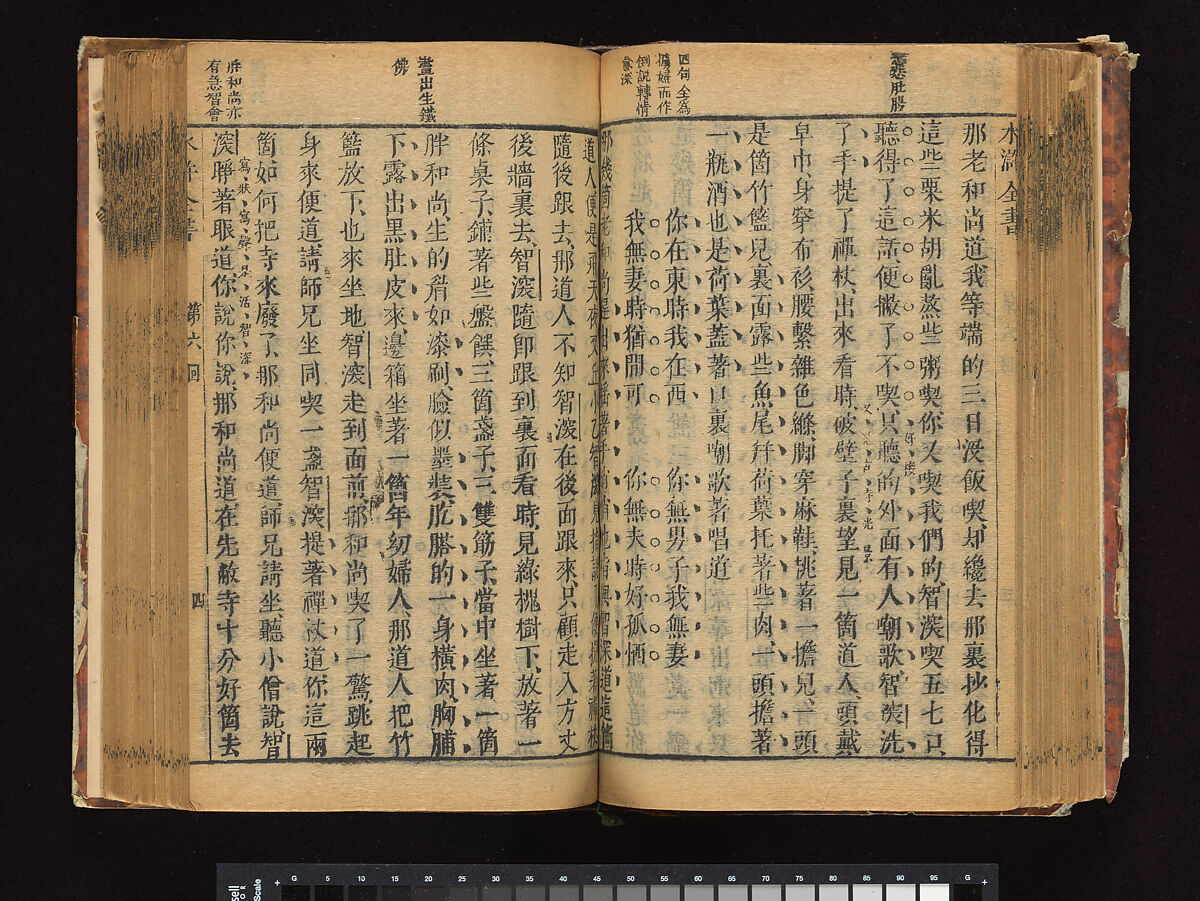 水滸全書
那老和尚道我等端的三日没飯喫却纔去那裏抄化得
這些粟米胡亂蒸些粥喫你又喫我們的智深喫五七口
聽得了這話便撇了不喫只聽的外面有人嘲歌智深洗
了手提了禪杖出來看時破壁子裏望見一箇道人頭戴
皁巾身穿布衫腰繫雜色縧脚穿麻鞋挑著一擔兒一頭
是箇竹籃兒裏面露些魚尾幷荷葉托著些肉一頭擔著
一瓶酒也是荷葉蓋著口裏嘲歌著唱道
你在東時我在西 你無男子我無妻
我無妻時猶閒可 你無夫時好孤恓
那幾箇老和尚趕出來搖著手悄悄地指與智深道這箇
四句全為
擄婦而作
倒說轉情
道人便是飛天夜叉丘小乙智深見
隨後跟去那道人不知智深在後面跟來只顧走入方丈
後牆裏去智深隨卽跟到裏面看時見綠槐樹下放著一
條桌子鋪著些盤饌三箇盞子三雙筯子當中坐著一箇
胖和尚生的眉如漆刷臉似墨裝肐𦞂的一身橫肉胸脯
下露出黑肚皮來邊箱坐著一箇年幼婦人那道人把竹
籃放下也來坐地智深走到面前那和尚喫了一驚跳起
身來便道請師兄坐同喫一盞智深提著禪杖道你這兩
箇如何把寺來廢了那和尚便道師兄請坐聽小僧說智
深睜著眼道你說你說那和尚道在先敝寺十分好箇去
寫狀寫聲是活智深
畫出生鐵
佛
胖和尚亦
有急智會
第六回
四